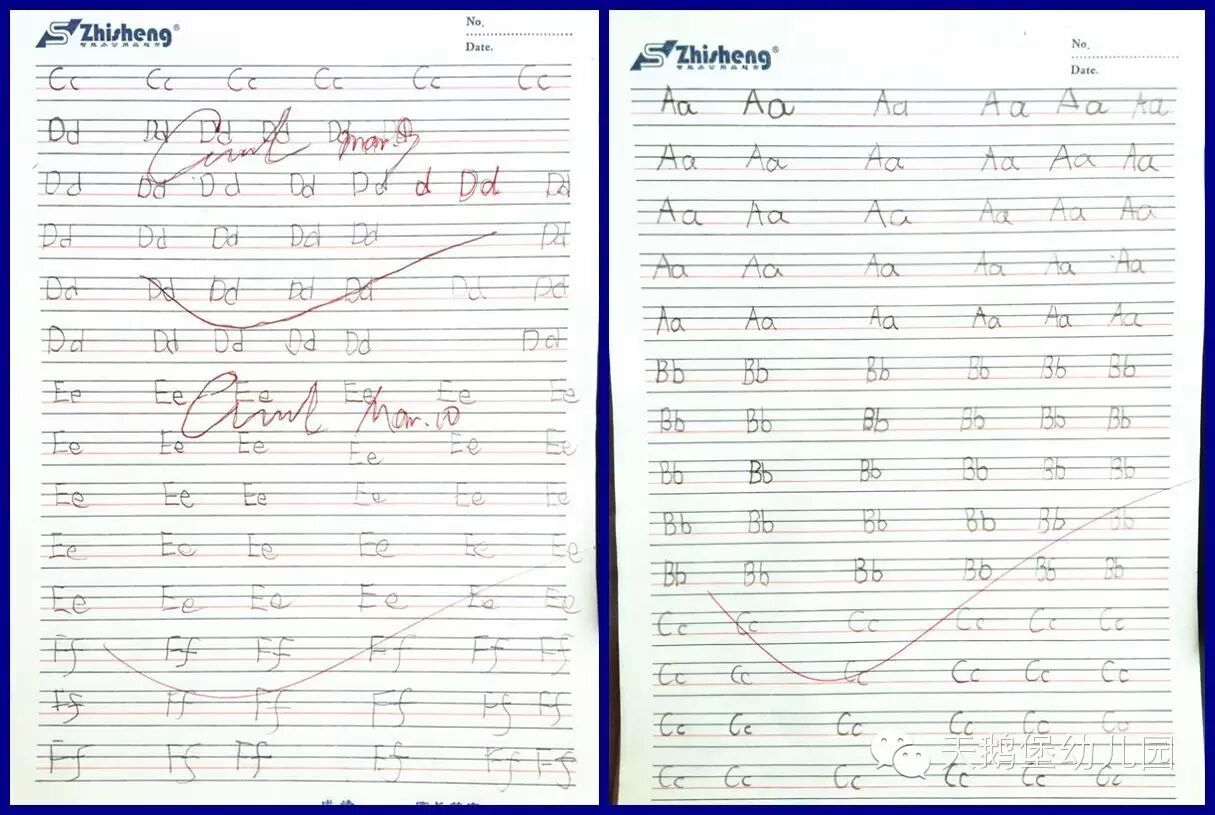 Zhisheng®
No.
Date.
Cc Cc Cc Cc Cc Cc
Dd Dd Dd Dd Dd
Dd Dd Dd Dd Dd d Dd Dd
Dd Dd Dd Dd Dd Dd
Dd Dd Dd Dd Dd Dd Dd
Dd Dd Dd Dd Dd Dd
Ee Ee Ee Ee Ee Ee
Mar.10
Ee Ee Ee Ee Ee Ee
Ee Ee Ee Ee Ee Ee
Ee Ee Ee Ee Ee Ee
Ee Ee Ee Ee Ee Ee
Ff Ff Ff Ff Ff Ff
Ff Ff Ff Ff Ff Ff
Ff Ff Ff Ff Ff Ff
Zhisheng®
No.
Date.
Aa Aa Aa Aa Aa Aa
Aa Aa Aa Aa Aa Aa
Aa Aa Aa Aa Aa Aa
Aa Aa Aa Aa Aa Aa
Aa Aa Aa Aa Aa Aa
Bb Bb Bb Bb Bb Bb
Bb Bb Bb Bb Bb Bb
Bb Bb Bb Bb Bb Bb
Bb Bb Bb Bb Bb Bb
Bb Bb Bb Bb Bb Bb
Cc Cc Cc Cc Cc Cc
Cc Cc Cc Cc Cc Cc
Cc Cc Cc Cc Cc Cc
Cc Cc Cc Cc Cc Cc
天鹅堡幼儿园